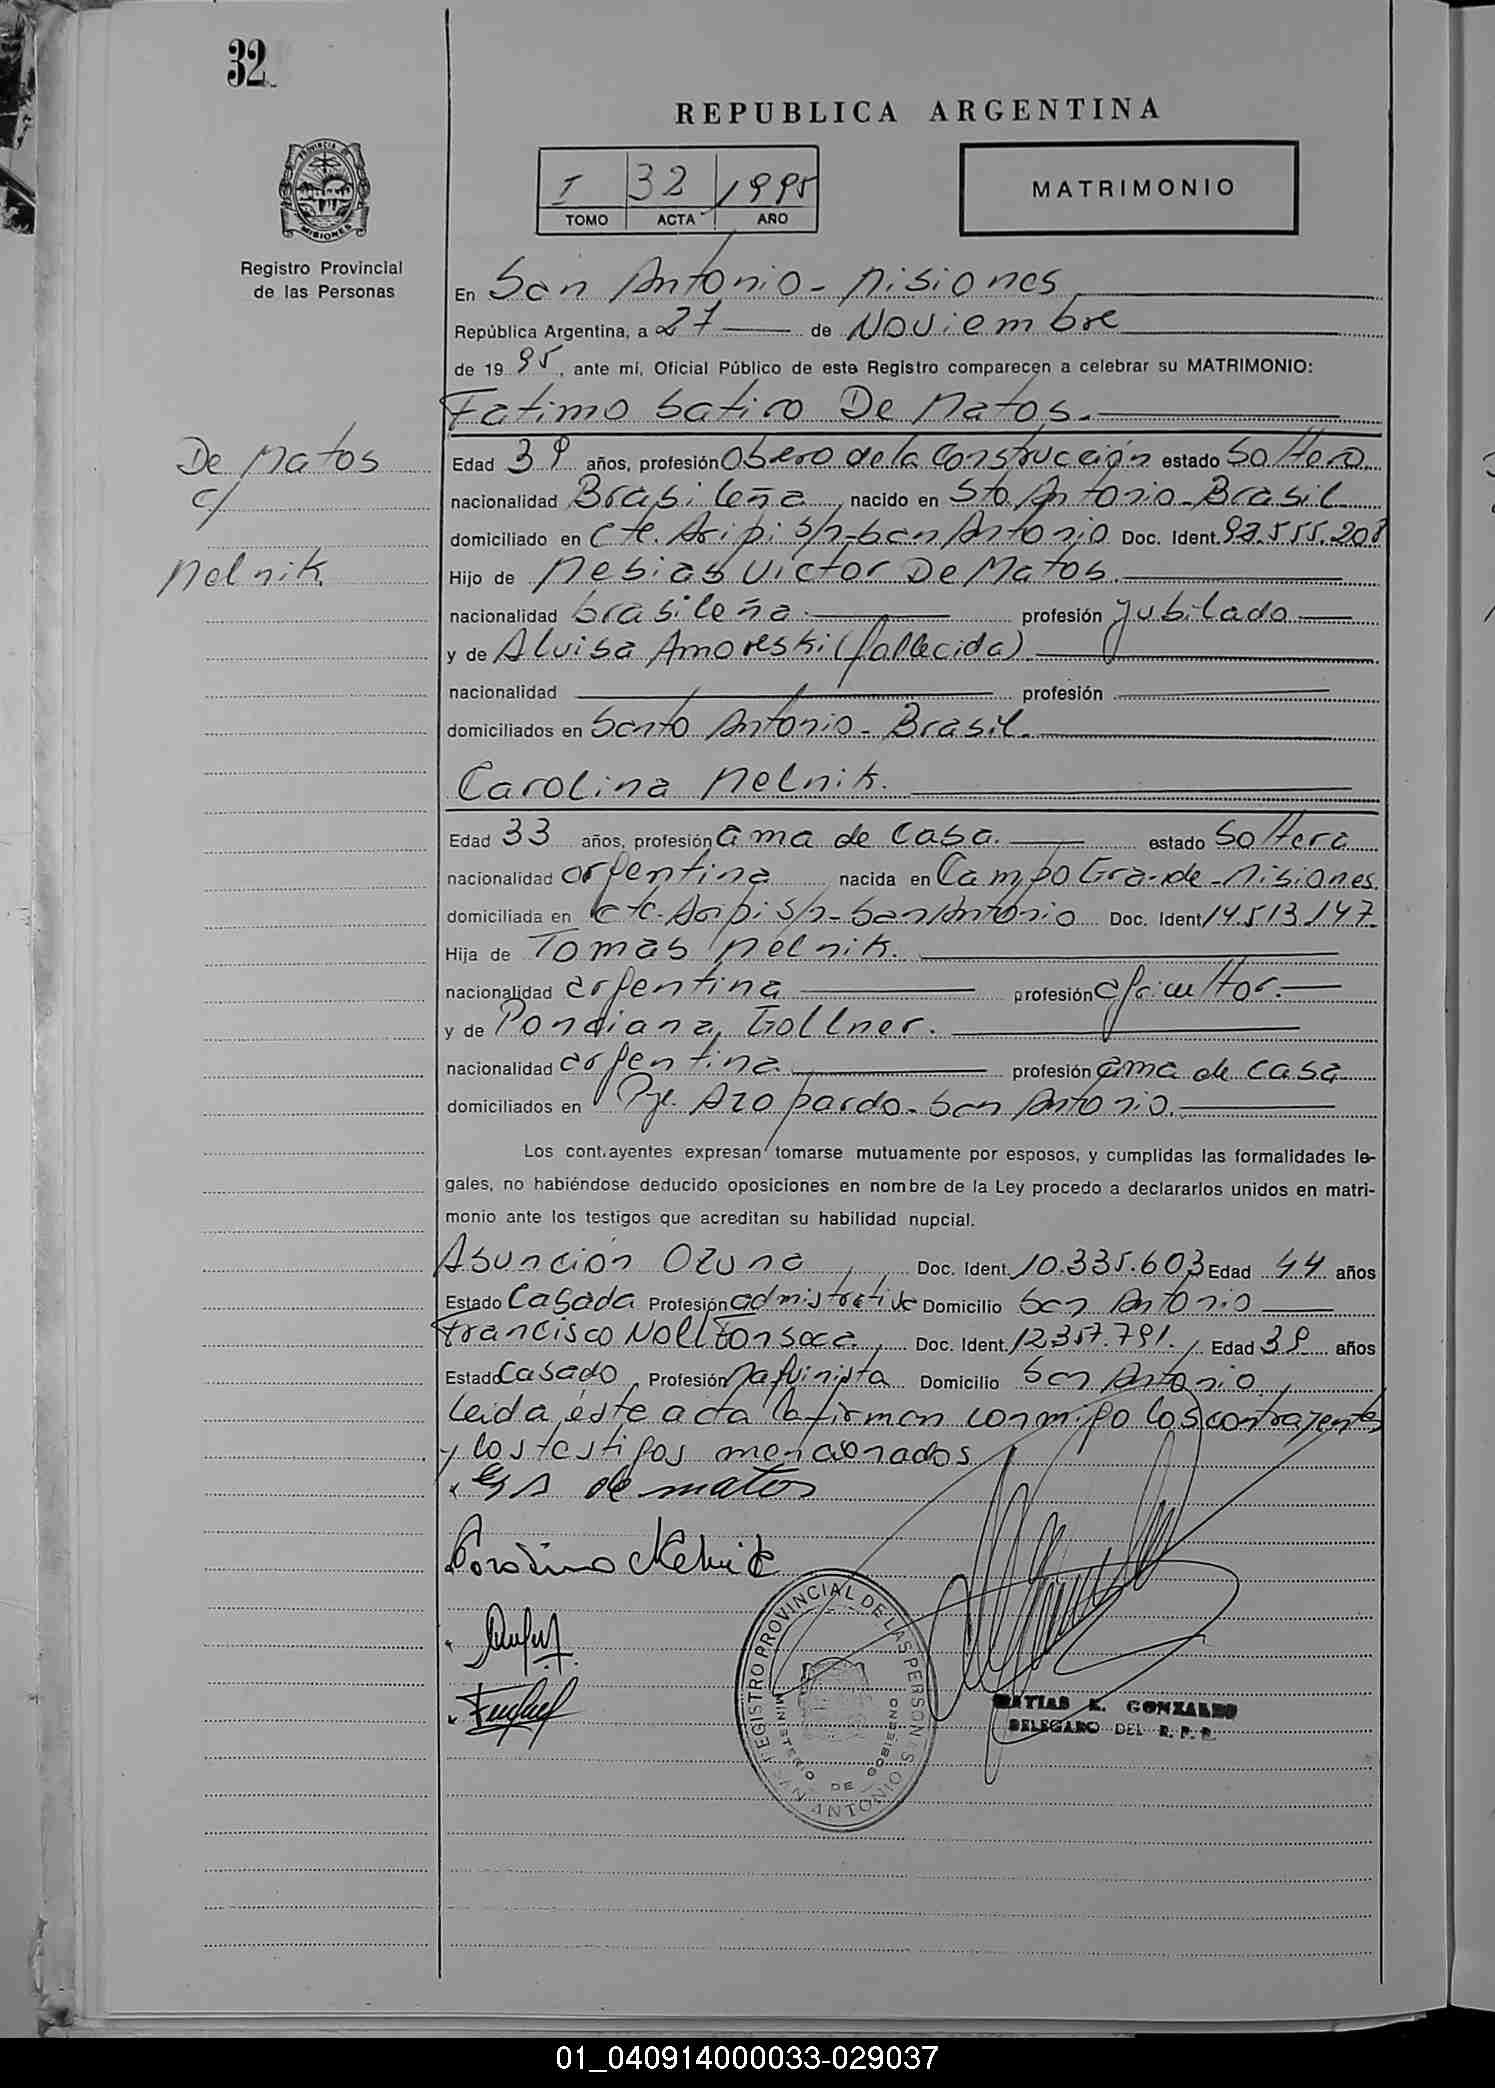 32
REPUBLICA ARGENTINA
I 32 1995
TOMO ACTA AÑO
MATRIMONIO
PROVINCIA DE
MISIONES
Registro Provincial
de las Personas
En San Antonio - Misiones
República Argentina, a 27 de Noviembre
de 1995, ante mí, Oficial Público de este Registro comparecen a celebrar su MATRIMONIO:
Fatimo Satiro De Matos.
De Matos
c/
Melnik
Edad 39 años, profesión Obrero de la Construcción estado Soltero
nacionalidad Brasileña, nacido en Sto. Antonio - Brasil
domiciliado en Cte. Aripi s/n - San Antonio Doc. Ident. 92.555.208
Hijo de Mesias Victor De Matos.
nacionalidad brasileña. profesión jubilado
y de Aluisa Amoreski (fallecida)
nacionalidad profesión
domiciliados en Santo Antonio - Brasil.
Carolina Melnik.
Edad 33 años, profesión ama de casa. estado Soltera
nacionalidad argentina nacida en Campo Grande - Misiones.
domiciliada en Cte. Aripi s/n - San Antonio Doc. Ident 14.513.147
Hija de Tomas Melnik.
nacionalidad argentina profesión agricultor.
y de Ponciana Gollner.
nacionalidad argentina profesión ama de casa
domiciliados en Pje. Azopardo - San Antonio.
Los contrayentes expresan tomarse mutuamente por esposos, y cumplidas las formalidades le-
gales, no habiéndose deducido oposiciones en nombre de la Ley procedo a declararlos unidos en matri-
monio ante los testigos que acreditan su habilidad nupcial.
Asunción Ozuna Doc. Ident. 10.335.603 Edad 44 años
Estado Casada Profesión admistrativa Domicilio San Antonio
Francisco Noll Fonseca, Doc. Ident. 12.357.791. Edad 39 años
Estado Casado, Profesión Maquinista Domicilio San Antonio,
Leida éste acta la firman conmigo los contrayentes
y los testigos mencionados
de matos
Carolina Melnik
REGISTRO PROVINCIAL DE LAS PERSONAS
MINISTERIO DE GOBIERNO
SAN ANTONIO
MATIAS GONZALEZ
DELEGADO DEL R. P. P.
01_040914000033-029037